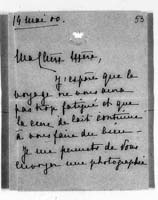 19 mai 00. 53
Ma Chère
J'espère que le
voyage ne vous aura
pas trop fatigué et que
la cure de lait continue
à vous faire du bien.
Je me permets de vous
envoyer une photographie